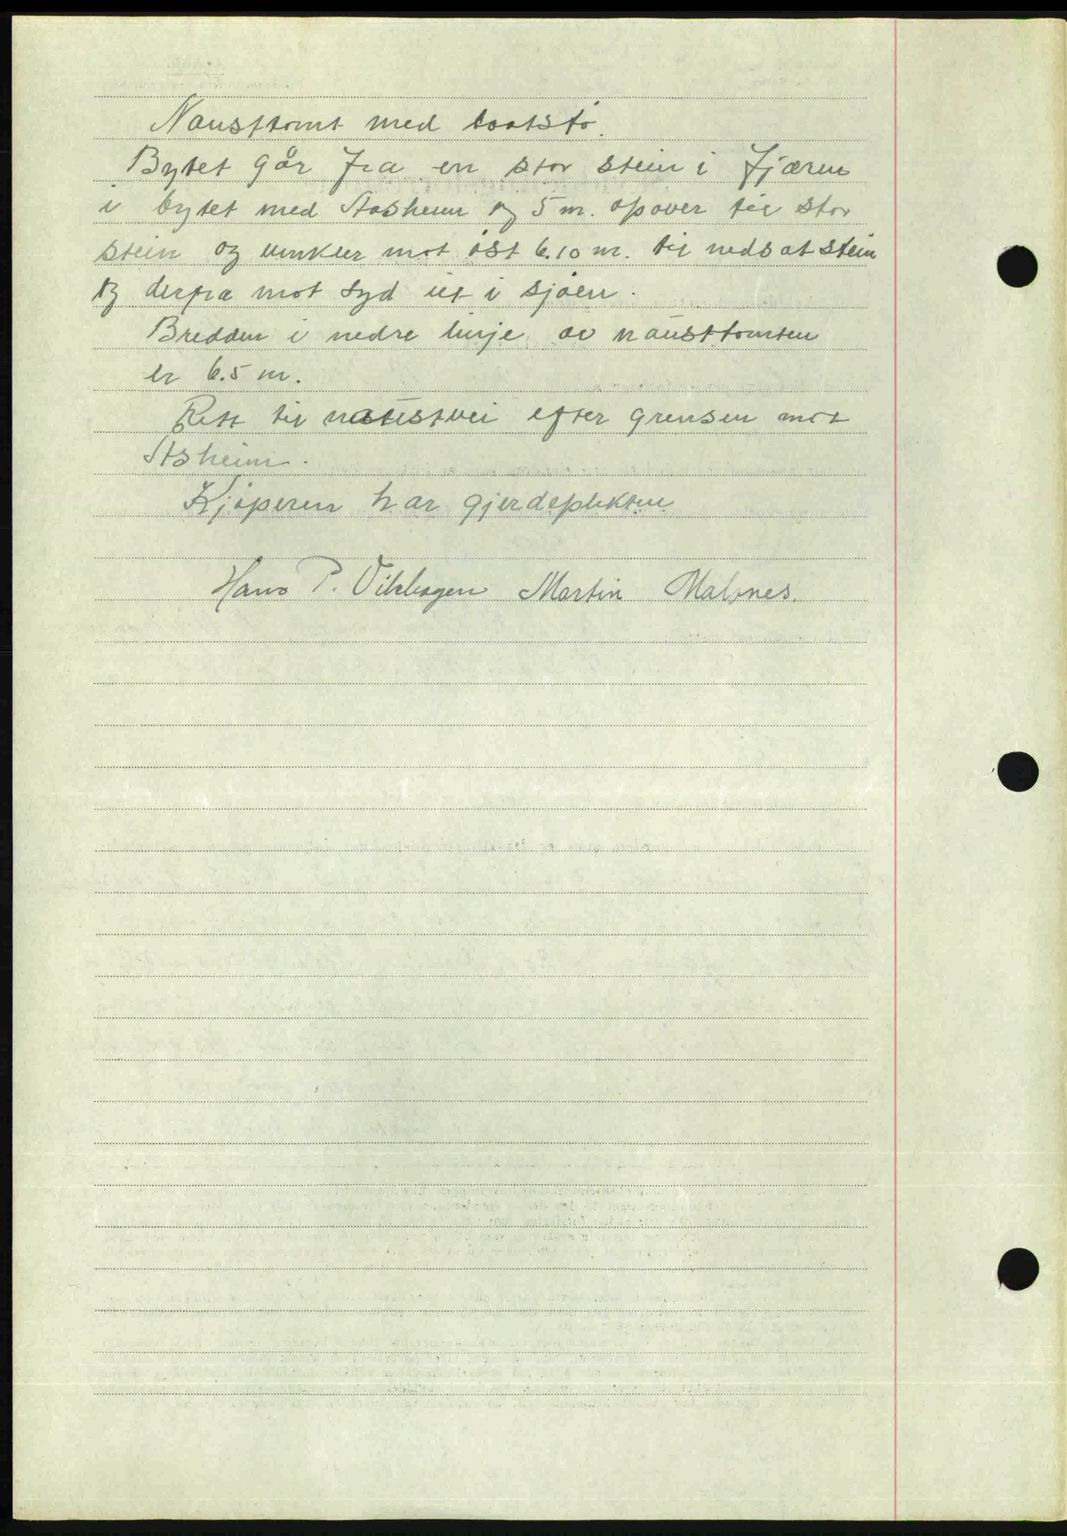 Nausttomt med baatstø.
Bytet går fra en stor stein i fjæren
i bytet med Aasheim og 5 m. opover til stor
stein og vinkler mot øst 6.10 m. til nedsat stein
og derfra mot syd ut i sjøen.
Bredden i nedre linje av nausttomten
er 6.5 m.
Rett til naustvei efter grensen mot
Åsheim.
Kjøperen har gjerdeplikten
Hans P. Vikhagen Martin Malones.